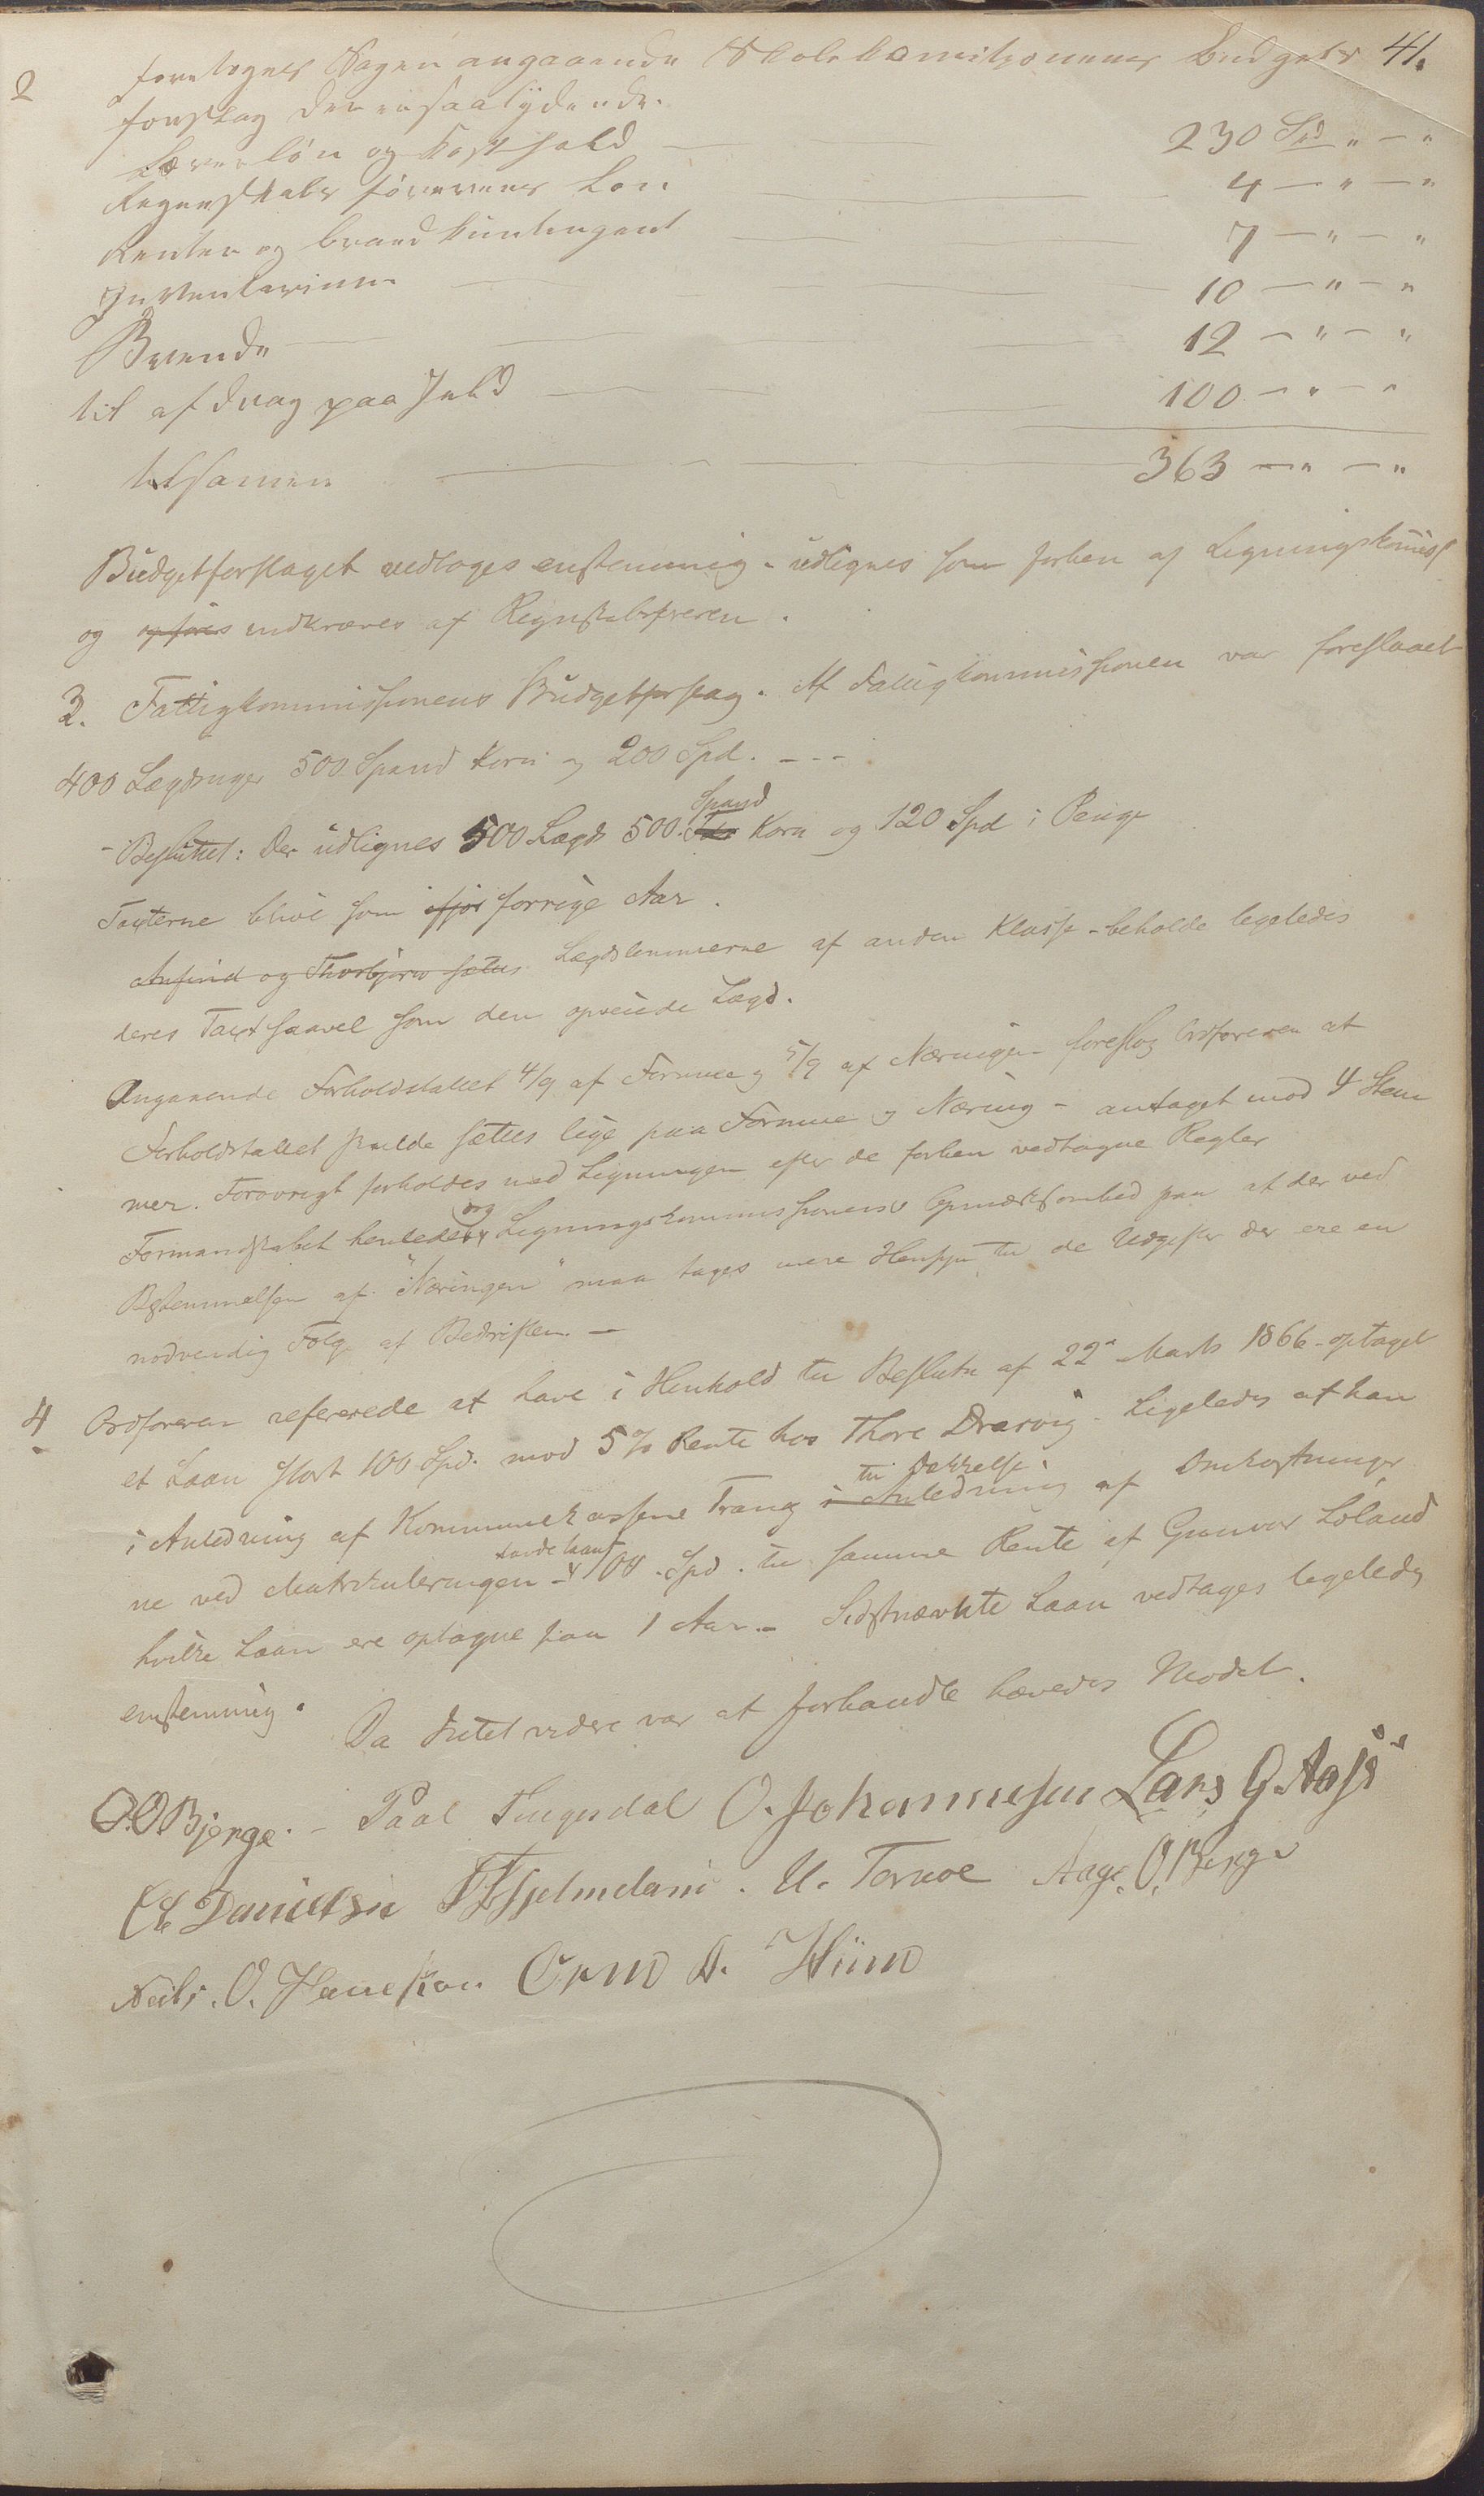 41.
2 foretoges Sagen angaaende Skolekomisjonens Budgets
forslag der er saalydende.
Lærerløn og Kosthold — 230 Spd " — "
Regenskabs førerens Løn — 4 — " — "
Renter og brand kuntingent — 7 — " — "
Inventarium — 10 — " — "
Brende — 12 — " — "
til afdrag paa Jæld — 100 — " — "
tilsamen — 363 — " — "
Budgetforslaget vedtoges enstemmig - udlignes som forhen af Ligningskomiss
og opføres indkræves af Regnskabsføreren.
3. Fattigkommissionens Budgetforslag. Af Fattigkommissionen var foreslaaet
400 Lægdsuger 500 Spand Korn og 200 Spd. - - -
- Besluttet: Der udlignes 500 Lægds 500 Spand Korn og 120 Spd i Penge
Taxterne blive som ifjor forrige Aar.
Anfind og Thorbjørn sættes Lægdslemmerne af anden Klasse - beholde legeledes
deres Taxt saavel som den øvrige Lægd.
Angaaende Forholdstallet 4/9 af Formue og 5/9 af Næringen foreslog Ordføreren at
Forholdstallet skulde sættes lige paa Formue og Næring - antaget mod 4 Stem
mer. Forøvrigt forholdes med Ligningen efter de forhen vedtagne Regler
Formandskabet henleder og Ligningskommissionens Opmærksomhed paa at der ved
Bestemmelsen af "Næringen" maa tages mere Hensyn til de Udgifter der ere en
nødvendig Følge af Bedriften. —
4 Ordføreren refererede at have i Henhold til Beslutn af 22de Marts 1866 - optaget
et Laan stort 100 Spd. mod 5% Rente hos Thore Drarvig - Ligeledes at han
i Anledning af Kommunekassens Trang i Anledning til Dekkelse af Omkostninger
ne ved Matrikuleringen - havde laant 100 Spd. til samme Rente af Gunvor Løland
hvilke Laan ere optagne paa 1 Aar. - Sidstnævnte Laan vedtages legeledes
enstemmig.
Da Intet videre var at forhandle hævedes Mødet.
O. O. Bjerge. - Paal Tingesdal O. Johannesen Lars G. Aase
E Danielsen T Hjelmeland. U. Tornoe Aage. O. Berge
Neils. O. Hauskon Orm A. Hiim